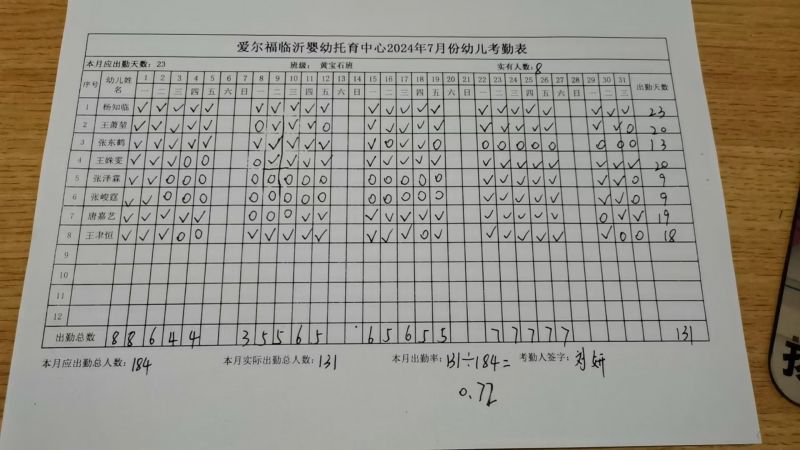 爱尔福临沂婴幼托育中心2024年7月份幼儿考勤表
本月应出勤天数：23 班级： 黄宝石班 实有人数：8
序号 幼儿姓名 1 2 3 4 5 6 7 8 9 10 11 12 13 14 15 16 17 18 19 20 21 22 23 24 25 26 27 28 29 30 31 出勤天数
一 二 三 四 五 六 日 一 二 三 四 五 六 日 一 二 三 四 五 六 日 一 二 三 四 五 六 日 一 二 三
1 杨知临 √ √ √ √ √ √ √ √ √ √ √ √ √ √ √ √ √ √ √ √ √ √ √ 23
2 王萧堃 √ √ √ √ √ O √ √ √ O √ √ √ √ √ √ √ √ √ √ √ √ O 20
3 张东鹤 √ √ √ √ √ √ √ √ √ √ √ O √ √ O O O O O O O O O 13
4 王姝雯 √ √ √ O O O √ √ √ √ √ √ √ √ √ √ √ √ √ √ √ √ √ 20
5 张泽霖 √ √ O O O O O O O O O O O O O √ √ √ √ √ √ √ O 9
6 张峻霆 √ √ O O O O O O O O O O O O O √ √ √ √ √ √ √ O 9
7 唐嘉艺 √ √ √ √ √ O O O √ √ √ √ √ √ √ √ √ √ √ √ O √ √ 19
8 王聿恒 √ √ √ O O √ √ √ √ √ √ √ √ O √ √ √ √ √ √ √ O O 18
9
10
11
12
出勤总数 8 8 6 4 4 3 5 5 6 5 6 5 6 5 5 7 7 7 7 7 131
本月应出勤总人数：184 本月实际出勤总人数：131 本月出勤率：131÷184= 考勤人签字：刘妍
0.72